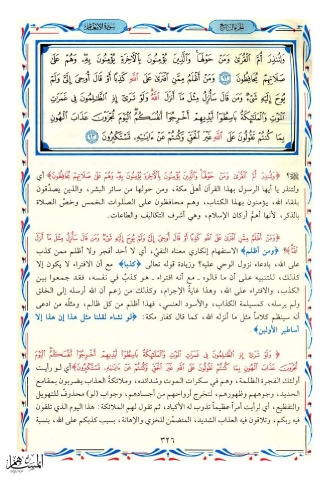 وَلِتُنذِرَ أُمَّ الْقُرَىٰ وَمَنْ حَوْلَهَا وَالَّذِينَ يُؤْمِنُونَ بِالْآخِرَةِ يُؤْمِنُونَ بِهِ وَهُمْ عَلَىٰ
صَلَاتِهِمْ يُحَافِظُونَ ﴿٩٢﴾ وَمَنْ أَظْلَمُ مِمَّنِ افْتَرَىٰ عَلَى اللَّهِ كَذِبًا أَوْ قَالَ أُوحِيَ إِلَيَّ وَلَمْ
يُوحَ إِلَيْهِ شَيْءٌ وَمَن قَالَ سَأُنزِلُ مِثْلَ مَا أَنزَلَ اللَّهُ وَلَوْ تَرَىٰ إِذِ الظَّالِمُونَ فِي غَمَرَاتِ
الْمَوْتِ وَالْمَلَائِكَةُ بَاسِطُوا أَيْدِيهِمْ أَخْرِجُوا أَنفُسَكُمُ الْيَوْمَ تُجْزَوْنَ عَذَابَ الْهُونِ
بِمَا كُنتُمْ تَقُولُونَ عَلَى اللَّهِ غَيْرَ الْحَقِّ وَكُنتُمْ عَنْ آيَاتِهِ تَسْتَكْبِرُونَ ﴿٩٣﴾
﴿وَلِتُنذِرَ أُمَّ الْقُرَىٰ وَمَنْ حَوْلَهَا وَالَّذِينَ يُؤْمِنُونَ بِالْآخِرَةِ يُؤْمِنُونَ بِهِ وَهُمْ عَلَىٰ صَلَاتِهِمْ يُحَافِظُونَ﴾ أي
ولتنذر يا أيها الرسول بهذا القرآن أهل مكة، ومن حولها من سائر البشر، والذين يصدّقون
بلقاء الله، يؤمنون بهذا الكتاب، وهم محافظون على الصلوات الخمس وخصّ الصلاة
بالذكر، لأنها أهمّ أركان الإسلام، وهي أشرف التكاليف والطاعات.
﴿وَمَنْ أَظْلَمُ مِمَّنِ افْتَرَىٰ عَلَى اللَّهِ كَذِبًا أَوْ قَالَ أُوحِيَ إِلَيَّ وَلَمْ يُوحَ إِلَيْهِ شَيْءٌ وَمَن قَالَ سَأُنزِلُ مِثْلَ مَا أَنزَلَ
اللَّهُ﴾ ﴿ومن أظلم﴾ الاستفهام إنكاري معناه النفيّ، أي لا أحد أفجر ولا أظلم ممن كذب
على الله، بادعاء نزول الوحي عليه؟ وزيادة قوله تعالى ﴿كذباً﴾ مع أن الافتراء لا يكون إلا
كذلك، للتنبيه على أن ما قالوه ـ مع أنه افتراء ـ هو كذبٌ في نفسه، فقد جمعوا بين
الكذب، والافتراء على الله، وهذا غايةُ الإجرام، وكذلك من زعم أن الله أرسله إلى الخلق
ولم يرسله، كمسيلمة الكذاب، والأسود العنسي، فهذا أظلم من كل ظالم، ومثله من ادعى
أنه سينظم كلاماً مثل ما أنزله الله، كما قال كفار مكة: ﴿لو نشاء لقلنا مثل هذا إن هذا إلا
أساطير الأولين﴾.
﴿وَلَوْ تَرَىٰ إِذِ الظَّالِمُونَ فِي غَمَرَاتِ الْمَوْتِ وَالْمَلَائِكَةُ بَاسِطُوا أَيْدِيهِمْ أَخْرِجُوا أَنفُسَكُمُ الْيَوْمَ
تُجْزَوْنَ عَذَابَ الْهُونِ بِمَا كُنتُمْ تَقُولُونَ عَلَى اللَّهِ غَيْرَ الْحَقِّ وَكُنتُمْ عَنْ آيَاتِهِ تَسْتَكْبِرُونَ﴾ أي لو رأيت
أولئك الفجرة الظلمة، وهم في سكرات الموت وشدائده، وملائكةُ العذاب يضربون بمقامع
الحديد، وجوههم وظهورهم، لتخرج أرواحهم من أجسادهم، وجواب (لو) محذوف للتهويل
والتفظيع، أي لرأيت أمراً عظيماً تذوب له الأكباد، ثم تقول لهم الملائكة: هذا اليوم الذي تلقون
فيه ربكم، وتلاقون فيه العذاب الشديد، المتضمّن للخزي والإهانة، بسبب كذبكم على الله، بنسبة
٣٢٦